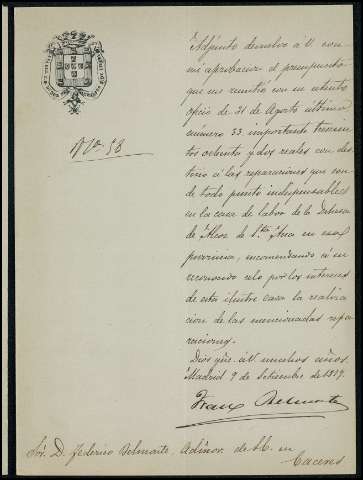 Nº 58
Adjunto devuelvo á V. con
mi aprobacion el presupuesto
que me remitió con su atento
oficio de 31 de Agosto último
número 33 importante trescien
tos ochenta y dos reales con des
tino á las reparaciones que son
de todo punto indispensables
en la casa de labor de la Dehesa
de Alcor de Sta. Ana en esa
provincia, recomendando á su
reconocido celo por los intereses
de esta ilustre casa la realiza
cion de las mencionadas repa
raciones.
Dios gue. á V. muchos años.
Madrid 9 de Setiembre de 1879.
Franco Belmonte
Sor. D. Federico Belmonte, Admor. de S.E. en
Caceres